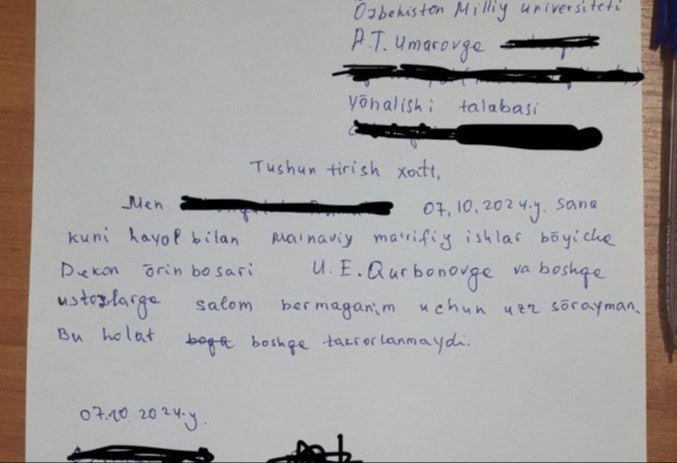 Õzbekiston Milliy universiteti
A.T. Umarovge
yõnalishi talabasi
Tushuntirish xati.
Men 07.10.2024.y. sana
kuni hayol bilan Ma'naviy ma'rifiy ishlar bõyiche
Dekon õrinbosari U.E.Qurbonovge va boshqe
ustozlarge salom bermaganim uchun uzr sõrayman.
Bu holat boshqe takrorlanmaydi.
07.10.2024.y.